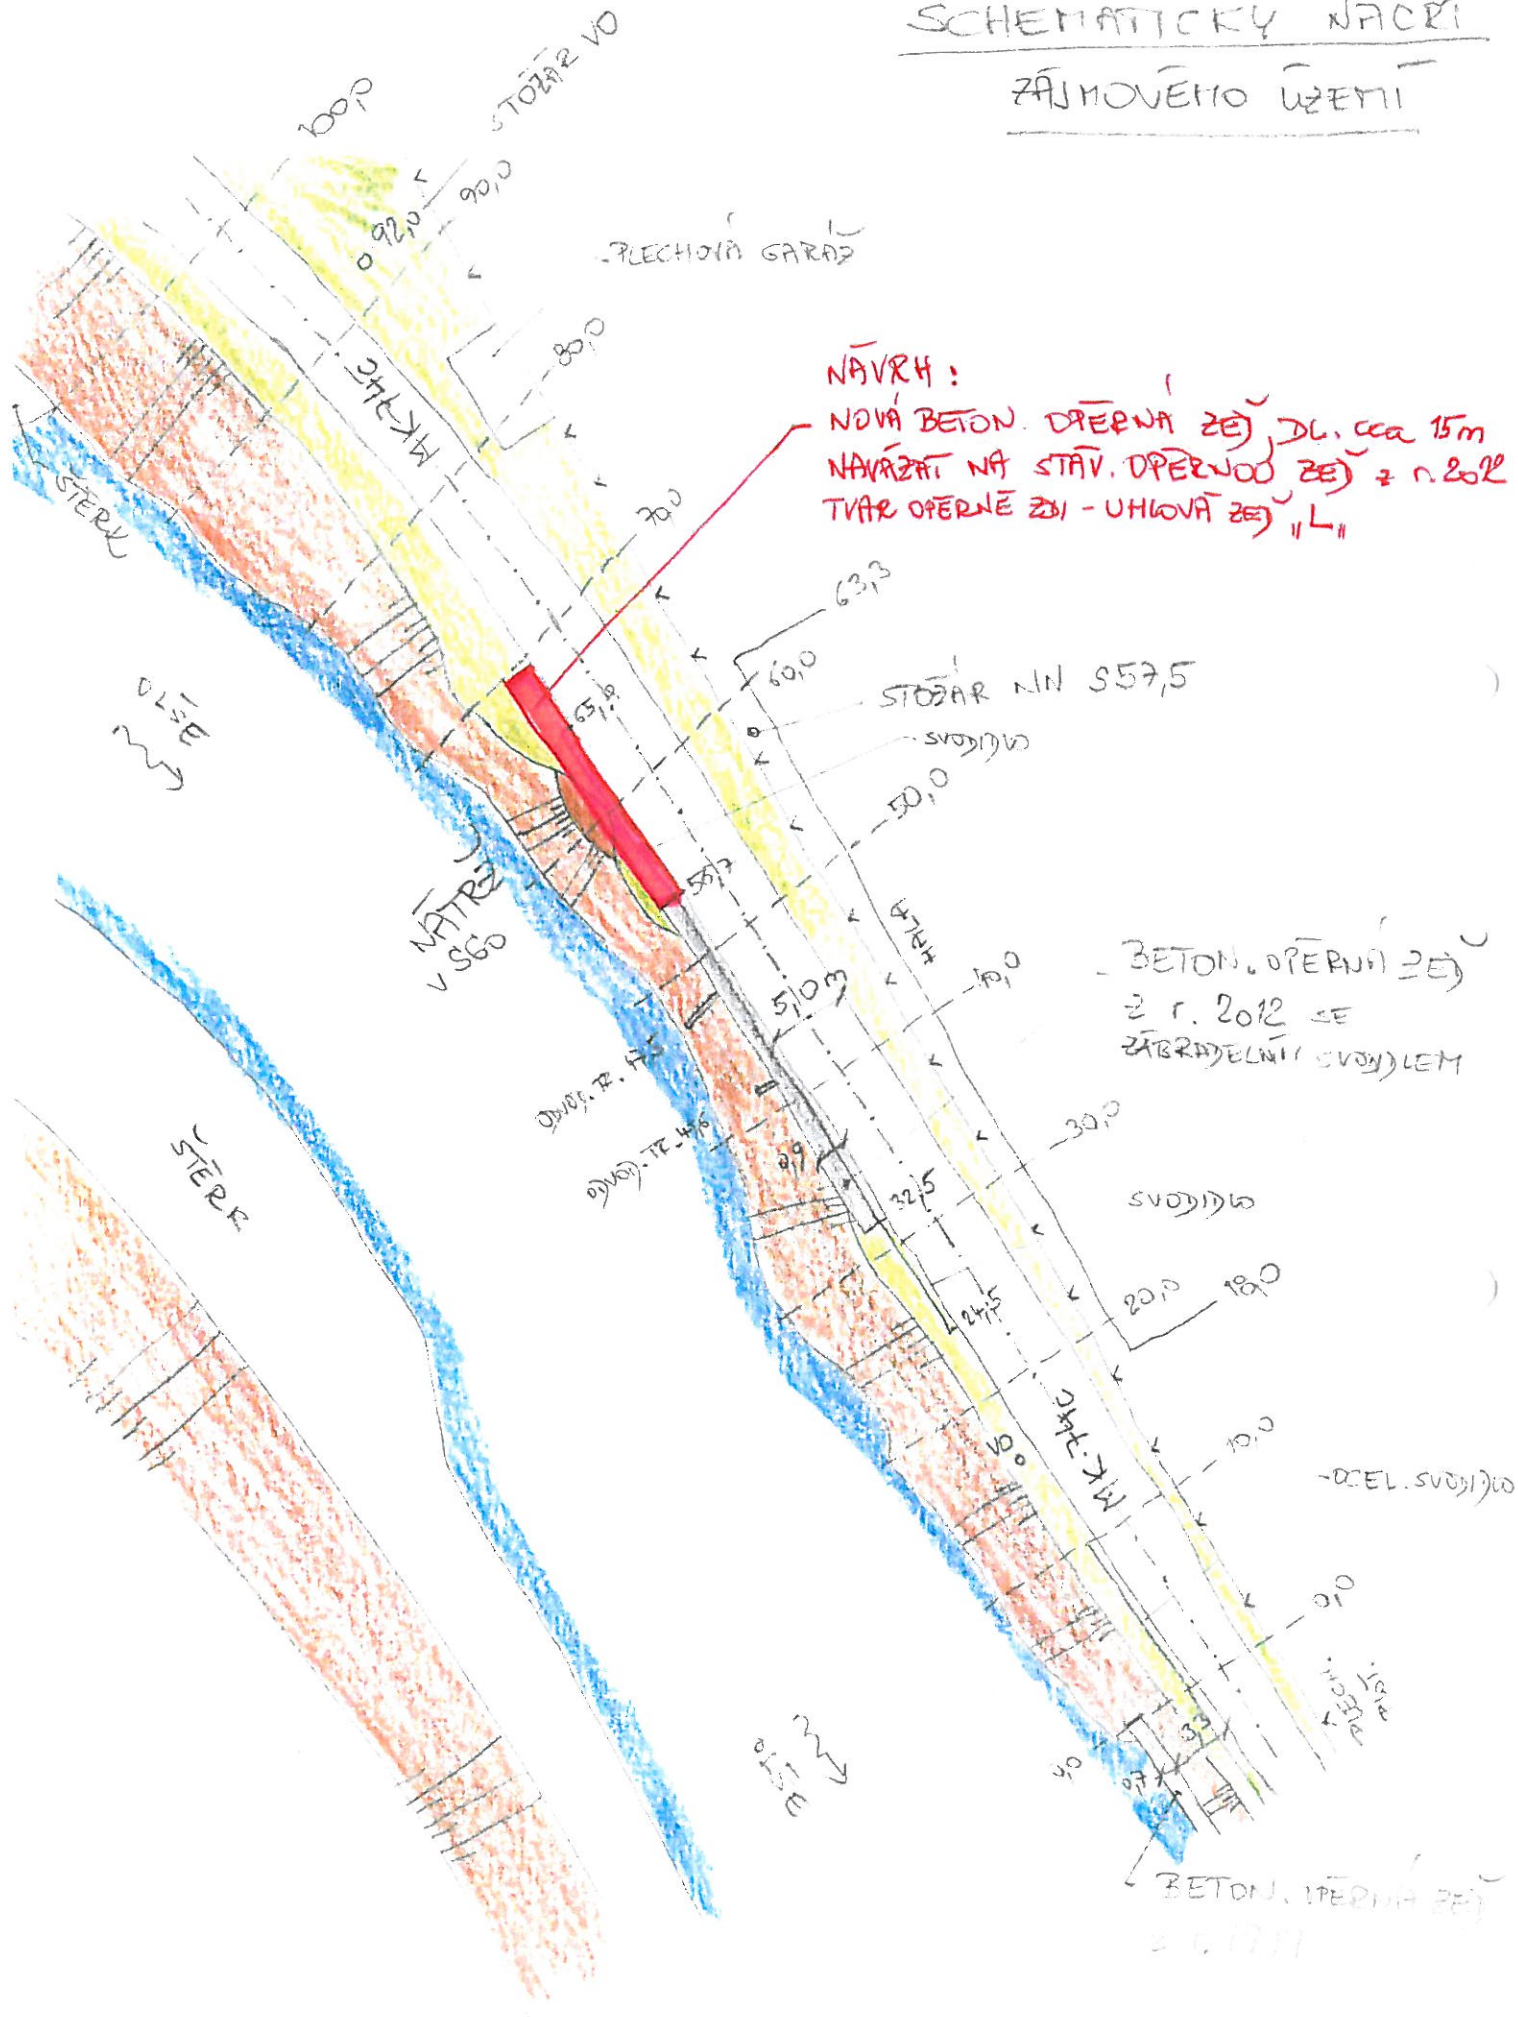 SCHEMATICKÝ NÁČRT
ZÁJMOVÉHO ÚZEMÍ
100,0
STOŽÁR VO
90,0
92,0
PLECHOVÁ GARÁŽ
80,0
MK 74C
NÁVRH:
NOVÁ BETON. OPĚRNÁ ZEĎ, DL. cca 15m
NAVÁZAT NA STÁV. OPĚRNOU ZEĎ z r. 2012
TVAR OPĚRNÉ ZDI - UHLOVÁ ZEĎ „L„
ŠTĚRK
70,0
63,3
60,0
STOŽÁR NN S57,5
OLŠE
SVODIDLO
50,0
NÁTRŽ
V S60
HALA
40,0
BETON. OPĚRNÁ ZEĎ
Z r. 2012 SE
ZÁBRADELNÍ SVODIDLEM
5,0 m
ODVOD. TR.
ODVOD. TR.
30,0
0,9
32,5
SVODIDLO
ŠTĚRK
24,5
20,0
18,0
MK 74C
VO
10,0
OCEL. SVODIDLO
0,0
3,3
0,0
0,7
OLŠE
BETON. OPĚRNÁ ZEĎ